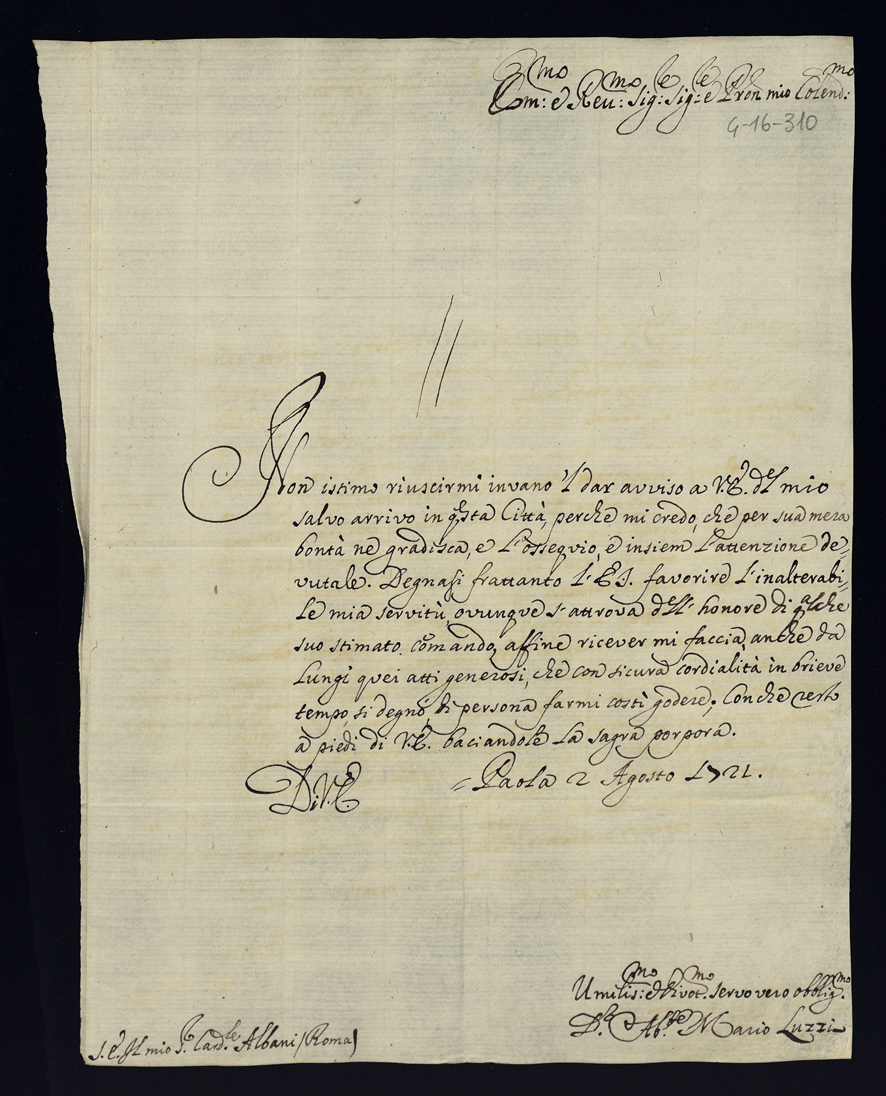 Em:mo e Reu:mo Sig:le Sig:le e Pron mio Colend:mo
4-16-310
Non istimo riuscirmi invano 'l dar avviso a V.E. del mio
salvo arrivo in qsta Città, perche mi credo, che per sua mera
bontà ne gradisca, e l'ossequio, e insiem l'attenzione de=
vutale. Degnasi frattanto l'E.S. favorire l'inalterabi=
le mia servitù, ovunque s'attrova dell'honore di qalche
suo stimato comando, affine ricever mi faccia, anche da
lungi quei atti generosi, che con sicura cordialità in brieve
tempo, si degnò, di persona farmi costì godere; Con che resto
a piedi di V.E. baciandole la sagra porpora.
Di V.E. = Paola 2 Agosto 1721.
Umilis:mo e Divot:mo servo vero obblig:mo
D.r Ab.te Mario Luzzi
S.E. Il mio S.r Card.le Albani (Roma)